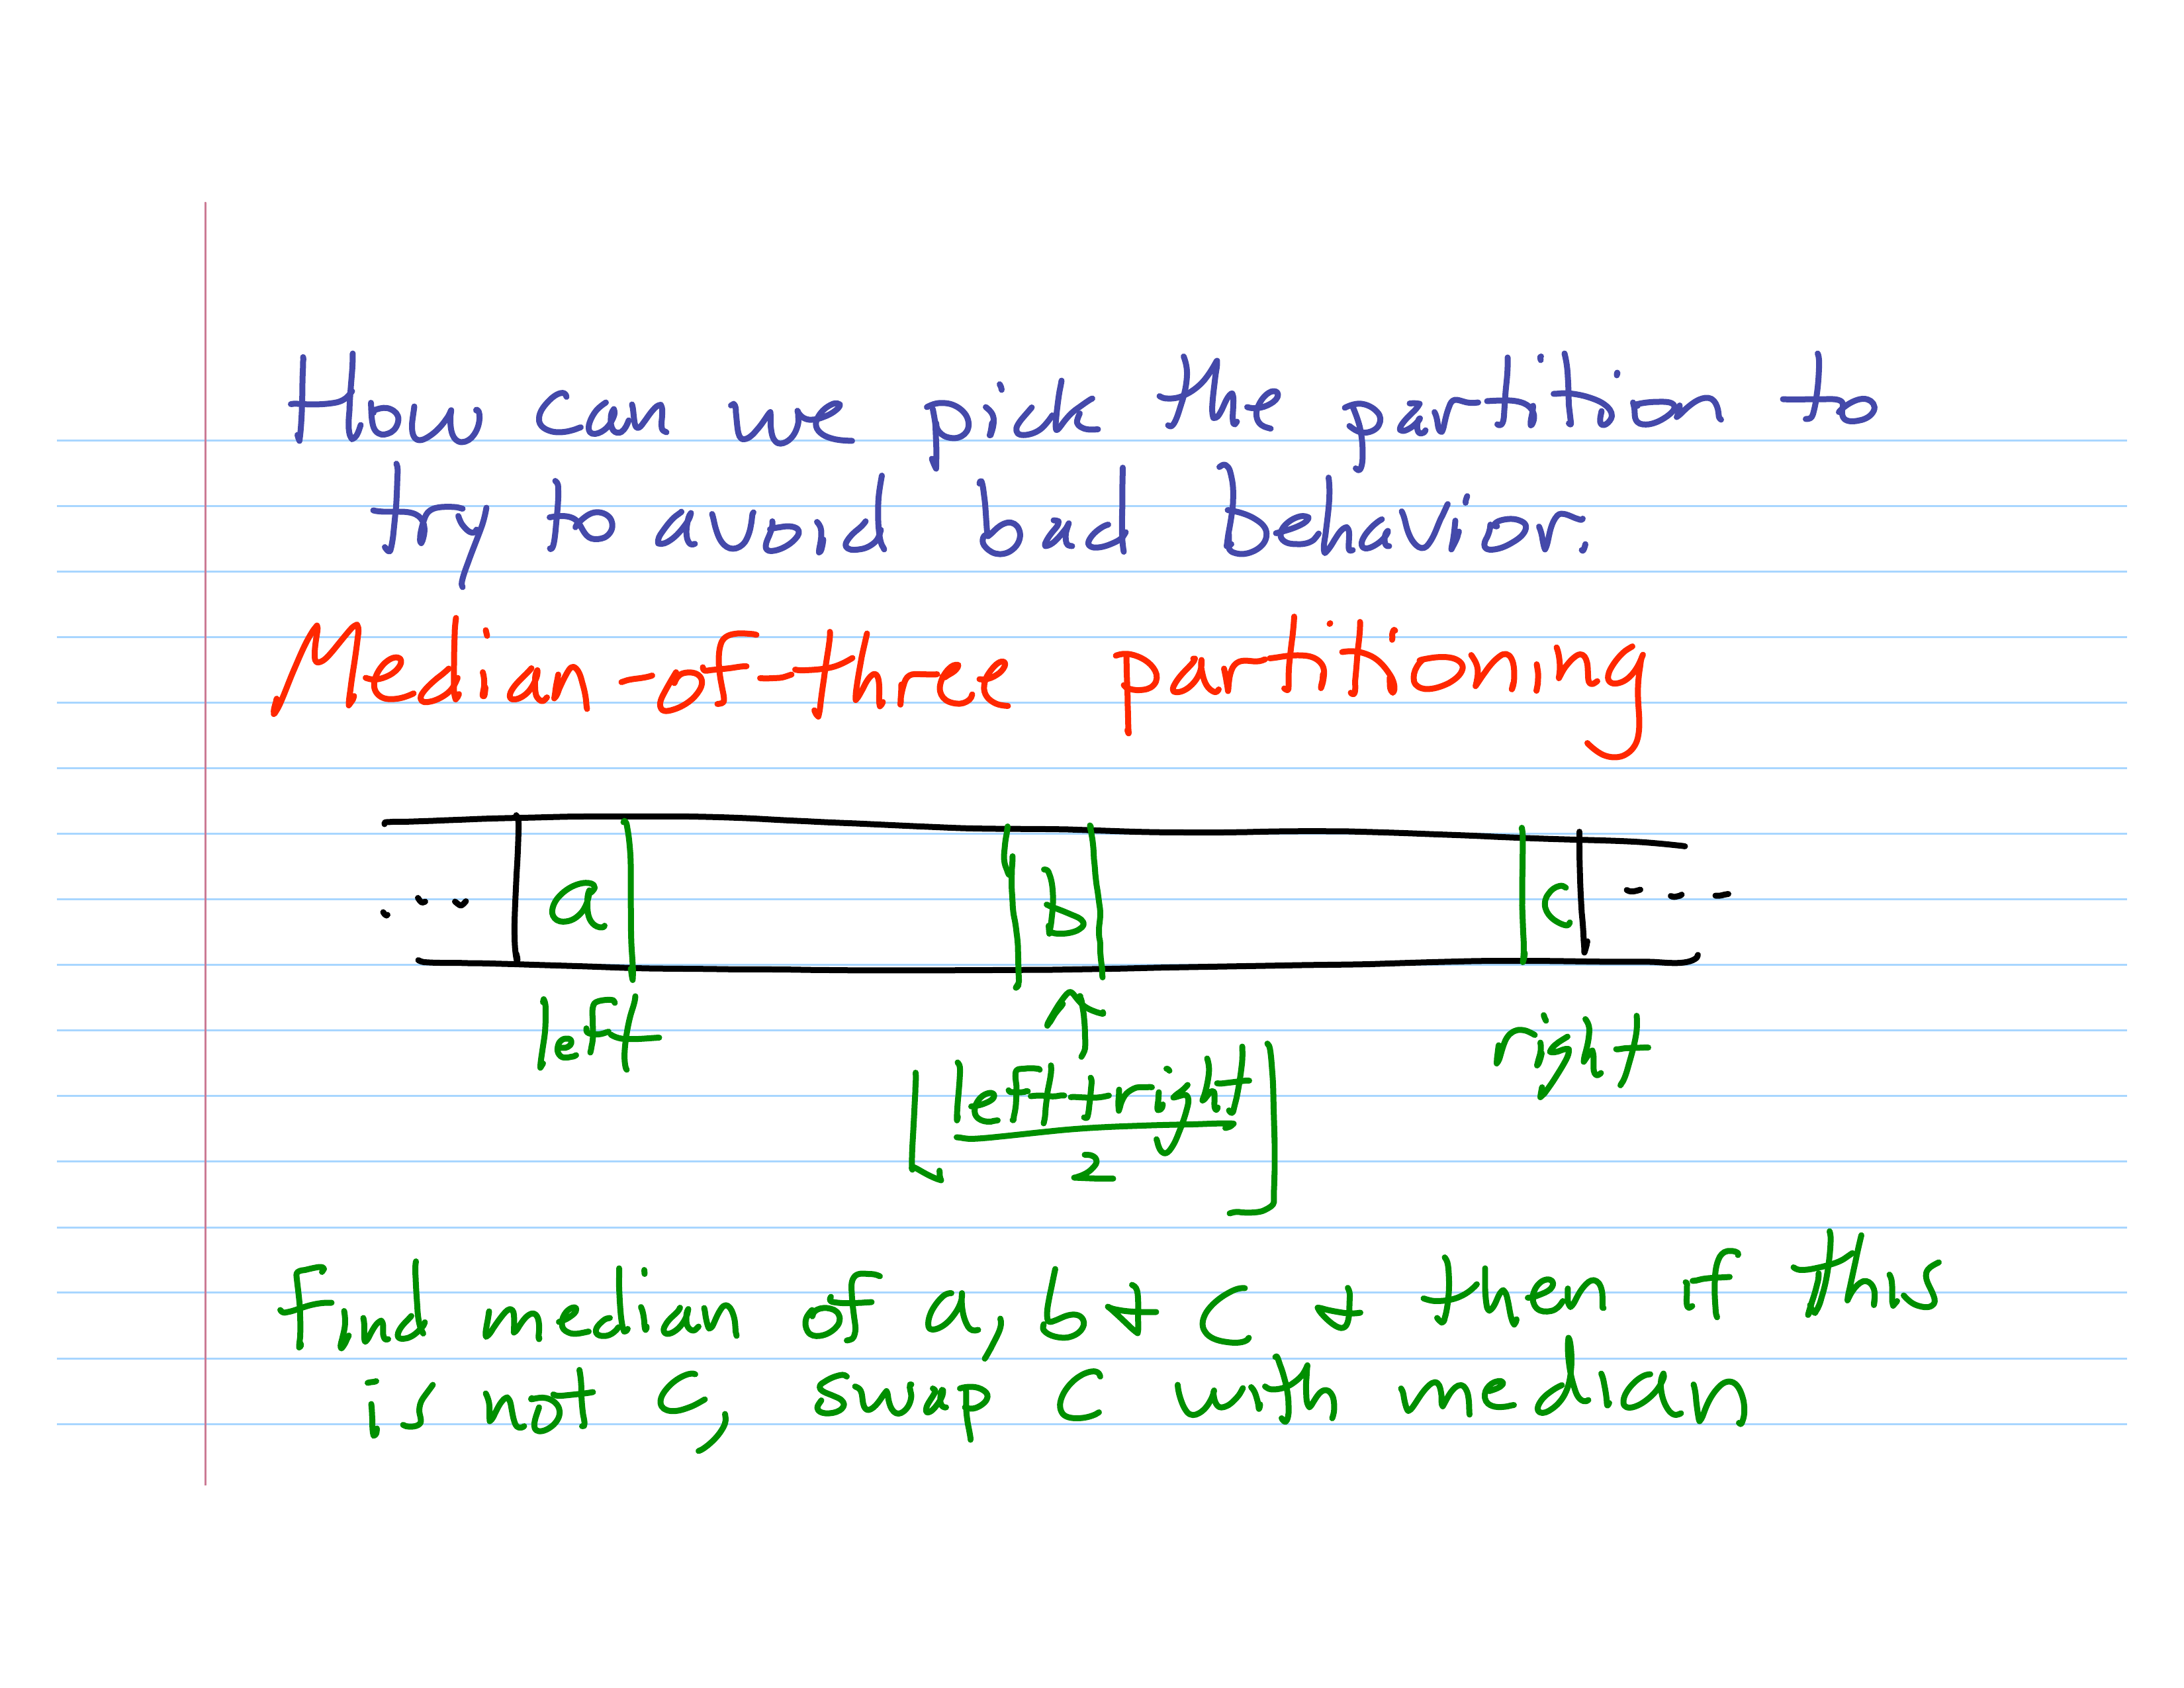 How can we pick the partition to
try to avoid bad behavior.
Median-of-three partitioning
... a b c ....
left right
⌊(left+right)/2⌋
Find median of a, b + c + then if this
is not c, swap c with median